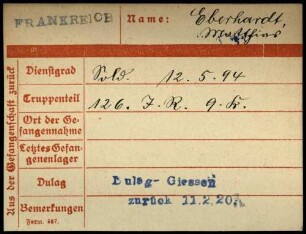 FRANKREICH
Name: Eberhardt,
Matthias
Aus der Gefangenschaft zurück
Dienstgrad Sold. 12.5.94
Truppenteil 126. J. R. 9. K.
Ort der Ge-
fangennahme
Letztes Gefan-
genenlager
Dulag Dulag-Giessen
Bemerkungen zurück 11.2.20
Form. 467.